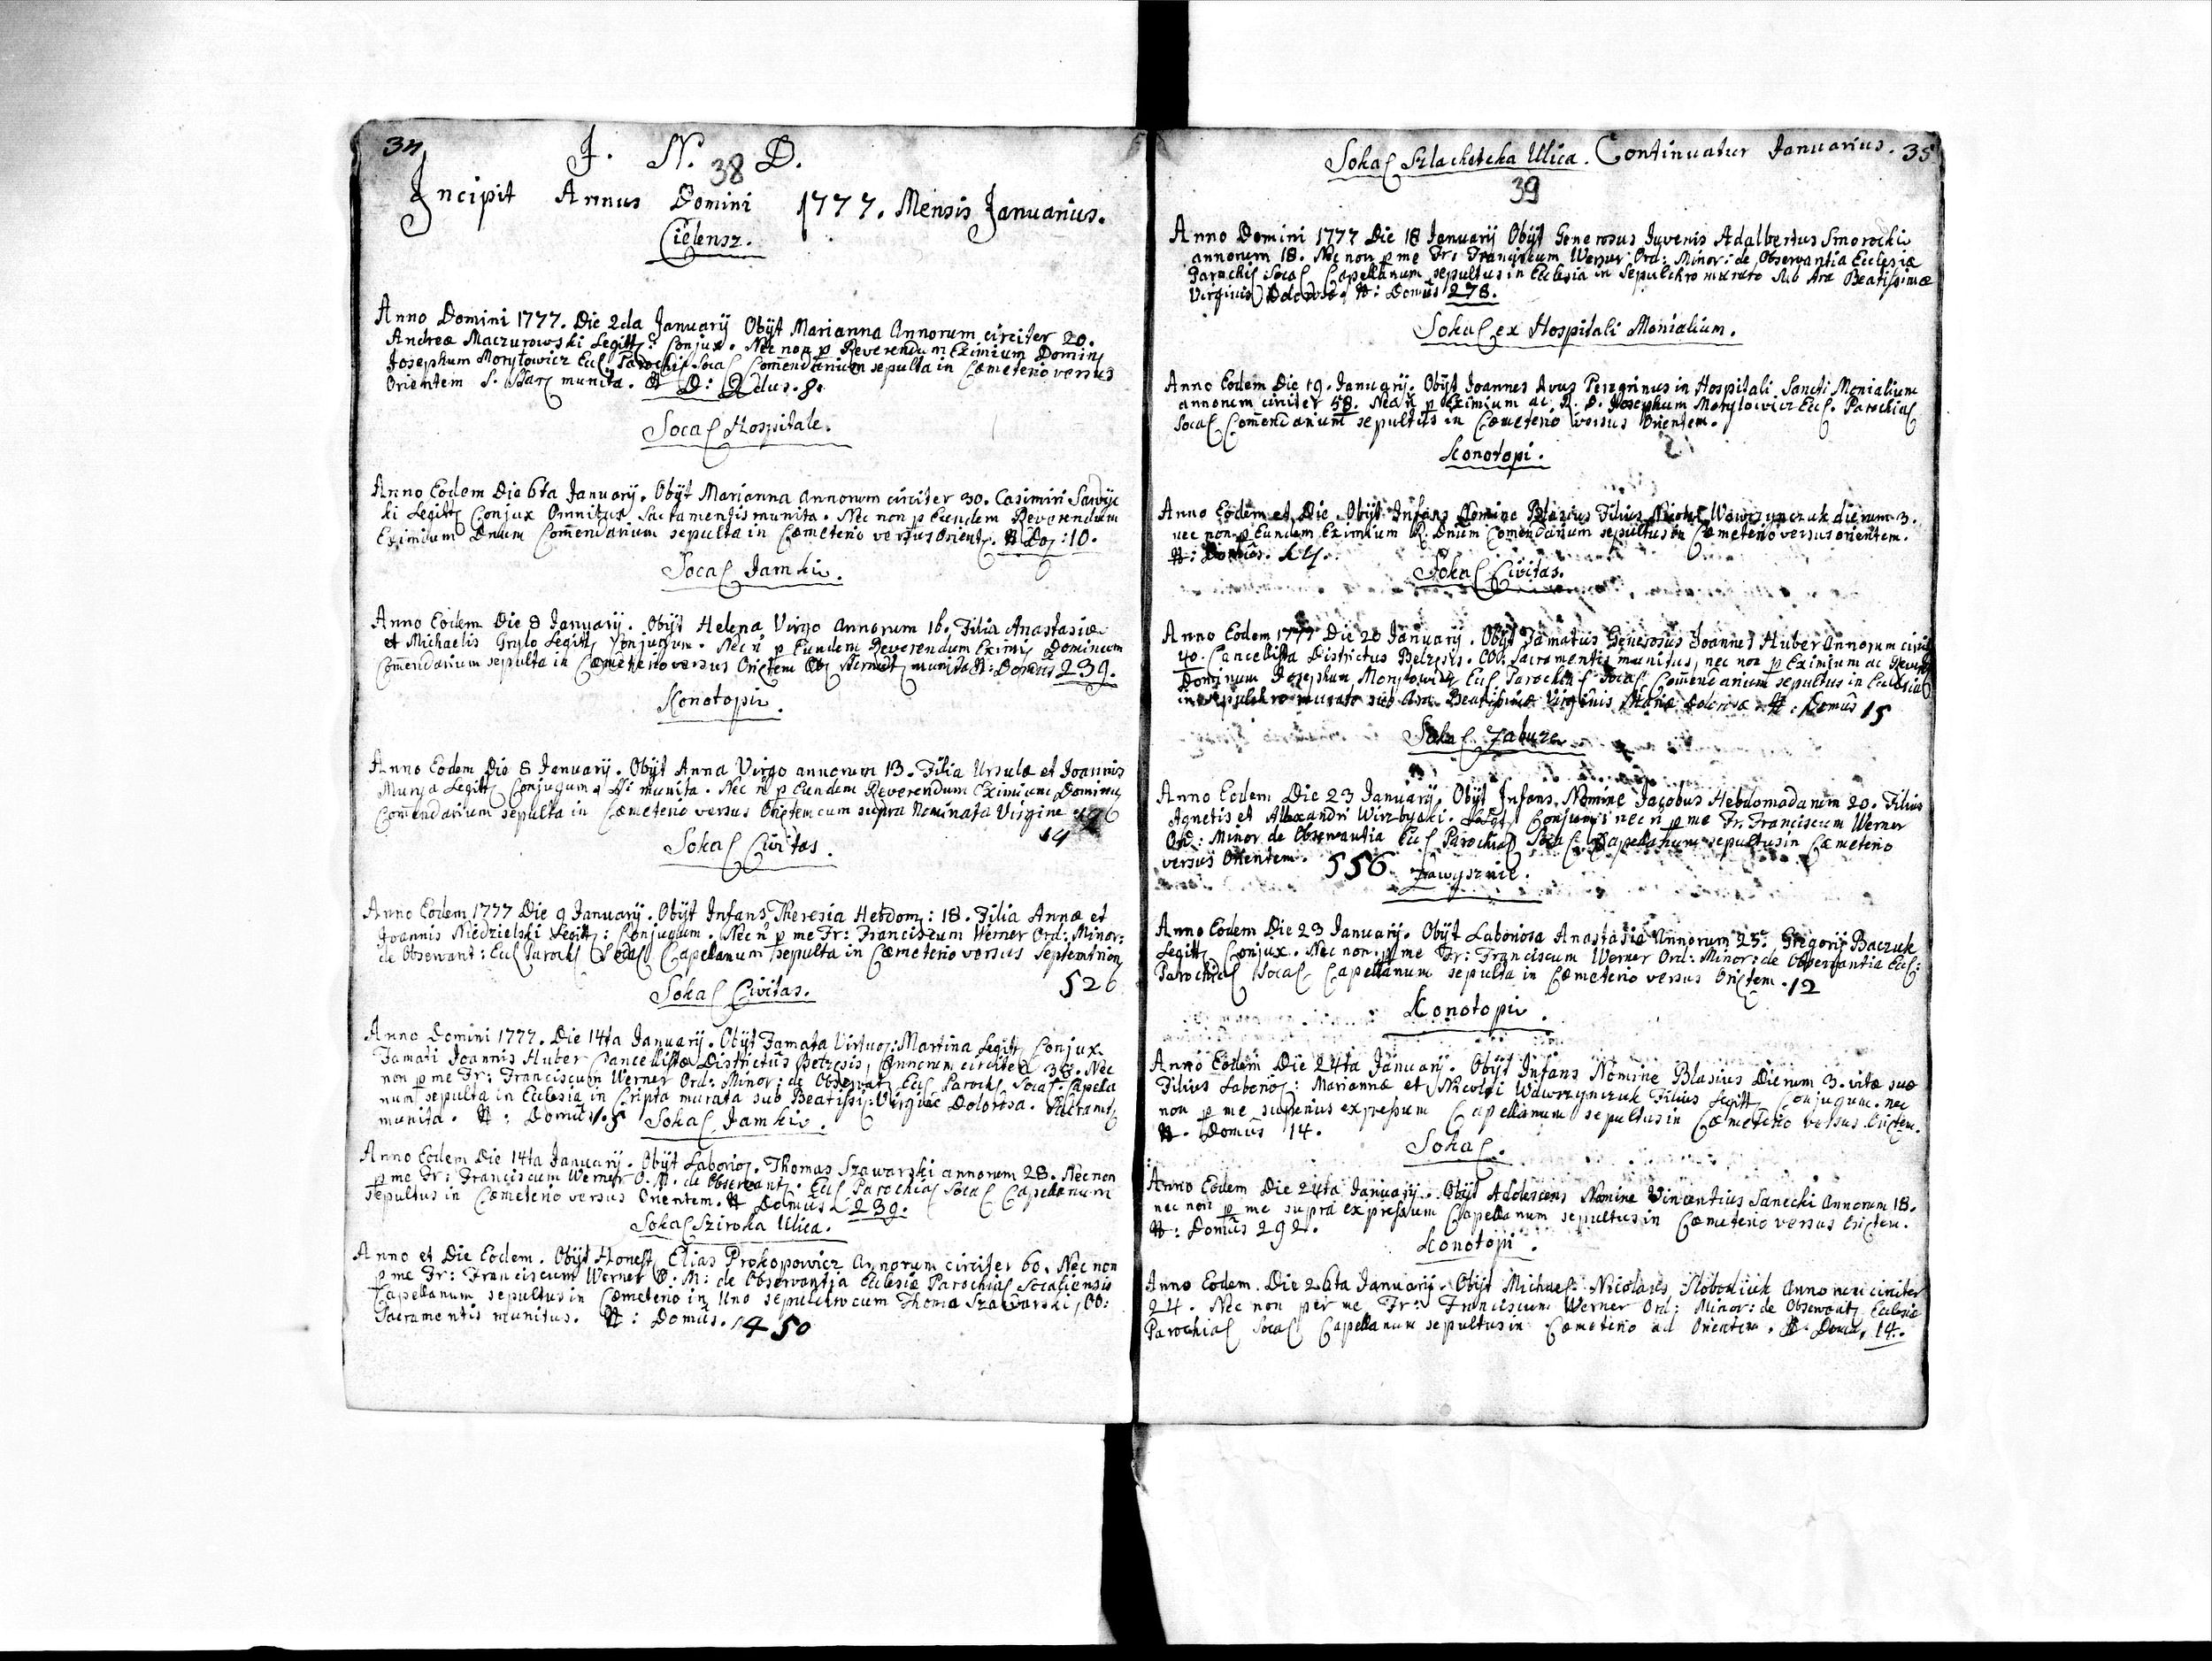 34
J. N. D.
38
Incipit Annus Domini 1777. Mensis Januarius.
Cielensz.
Anno Domini 1777. Die 2da Januarij Obijt Marianna Annorum circiter 20.
Andreæ Maczurowski Legitt: Conjux. Nec non p Reverendum Eximium Domin
Josephum Morytowicz Ecl. Parochis Soca Com̄endarium sepulta in Cæmeterio versus
Orientem munita. D: 8.
Socal Hospitale.
Anno Eodem Die 6ta Januarij. Obijt Marianna annorum circiter 30. Casimiri
ki Legitt Conjux Omnibus Sacramentis munita. Nec non p Eundem Reverendum
Eximium Dnum Com̄endarium sepulta in Cæmeterio versus Orient. N Do: 10.
Socal Jamki.
Anno Eodem Die 8 Januarij. Obijt Helena Virgo annorum 16. Filia Anastasiæ
et Michaelis Grylo Legitt Conjugum. Nec n̄ p Eundem Reverendum Eximi Dominum
Com̄endarium sepulta in Cæmeterio versus Orictem munita N: Domus 239.
Konotopi.
Anno Eodem Die 8 Januarij. Obijt Anna Virgo annorum 13. Filia Ursulæ et Joannis
Munja Legitt Conjugum munita. Nec n̄ p Eundem Reverendum Eximium Dominu
Com̄endarium sepulta in Cæmeterio versus Orictem cum supra Nominata Virgine
14
Sokal Civitas.
Anno Eodem 1777 Die 9 Januarij. Obijt Infans Theresia Hebdom: 18. Filia Annæ et
Joannis Niedzielski Legitt: Conjugum. Nec n̄ p me Fr: Franciscum Werner Ord: Minor:
de Observant: Ecl Paroch Socal Capellanum sepulta in Cæmeterio versus Septentrion
526
Sokal Civitas.
Anno Domini 1777. Die 14ta Januarij. Obijt Famata Virtuo: Martina Legitt Conjux
Famati Joannis Huber Cancellistæ Districtus Belzesis, Annorum circiter 38. Nec
non p me Fr: Franciscum Werner Ord: Minor: de Observat Ecl Paroch Socal. Capella
num sepulta in Ecclesia in Cripta murata sub Beatissi: Virginæ Dolorosa. Sacramt
munita. N: Domus 15
Sokal Jamki.
Anno Eodem Die 14ta Januarij. Obijt Laborio. Thomas Szawarski annorum 28. Nec non
p me Fr: Franciscum Werner O. M. de Observant. Ecl Parochia Socal Capellanum
sepultus in Cæmeterio versus Orientem. N Domus 239.
Sokal Sziroka Ulica.
Anno et Die Eodem. Obijt Honest Elias Prokopowicz Annorum circiter 60. Nec non
p me Fr: Franciscum Werner O. M: de Observantia Eclesiæ Parochia Socaliensis
Capellanum sepultus in Cæmeterio in Uno sepulchro cum Thoma Szawarski, OO:
Sacramentis munitus. N: Domus. 450
Sokal Szlachetcka Ulica. Continuatur Januarius. 35
39
Anno Domini 1777 Die 18 Januarij Obijt Generosus Juvenis Adalbertus Smorocki
annorum 18. Nec non p me Fr: Franciscum Werner Ord: Minor: de Observantia Ecclesiæ
Parochis Socal Capellanum sepultus in Eclesia in Sepulchro murato sub Ara Beatissimæ
Virginis Dolorosæ. N: Domus 278.
Sokal ex Hospitali Monialium.
Anno Eodem Die 19. Januarij. Obijt Joannes Avus Peregrinus in Hospitali Sancti Monialium
annorum circiter 58. Nec n̄ p Eximium ac R. D. Josephum Morytowicz Ecl. Parochia
Socal Com̄endarium sepultus in Cæmeterio versus Orientem.
Konotopi.
Anno Eodem et Die. Obijt Infans Nomine Blasius Filius Nicol Wawrzynczuk dierum 3.
nec non p Eundem Eximium R. Dnum Comendarium sepultus in Cæmeterio versus orientem.
N: Domûs. 14.
Sokal Civitas.
Anno Eodem 1777 Die 20 Januarij. Obijt Famatus Generosus Joannes Huber Annorum circit
40. Cancellista Districtus Belzesis. OO. Sacramentis munitus, nec non p Eximium ac Reveren
Dominum Josephum Morytowicz Ecl Parochia Socal Com̄endarium sepultus in Eclesia
in sepulchro murato sub Ara Beatissimæ Virginis Mariæ Dolorosæ N: Domûs 15
Sokal Zabuze.
Anno Eodem Die 23 Januarij. Obijt Infans Nomine Jacobus Hebdomadarum 20. Filius
Agnetis et Allexandri Wirzbycki. Legit Conjum nec n̄ p me Fr. Franciscum Werner
Ord: Minor de Observantia Ecl Parochia Socal Capellanum sepultus in Cæmeterio
versus Orientem. 556
Zawysznie.
Anno Eodem Die 23 Januarij. Obijt Laboriosa Anastasia Annorum 25. Gregorij Baczuk
Legitt Conjux. Nec non p me Fr: Franciscum Werner Ord: Minor: de Observantia Ecl:
Parochia Socal Capellanum sepulta in Cæmeterio versus Orictem. 12
Konotopi.
Anno Eodem Die 24ta Januarij. Obijt Infans Nomine Blasius Dierum 3. vitæ suæ
Filius Laborio: Mariannæ et Nicolai Wawrzynczuk Filius Legitt Conjugum. nec
non p me superius expressum Capellanum sepultus in Cæmeterio versus Orictem.
N. Domus 14.
Sokal.
Anno Eodem Die 24ta Januarij. Obijt Addescens Nomine Vincentius Sanecki Annorum 18.
nec non p me supra expressum Capellanum sepultus in Cæmeterio versus Orictem.
N: Domus 292.
Konotopi.
Anno Eodem. Die 26ta Januarij. Obijt Michael Nicolaus Slobodiuk Annorum circiter
24. Nec non per me Fr: Franciscum Werner Ord: Minor: de Observant Eclesiæ
Parochial Socal Capellanum sepultus in Cæmeterio ad Orientem. N. Domu, 14.